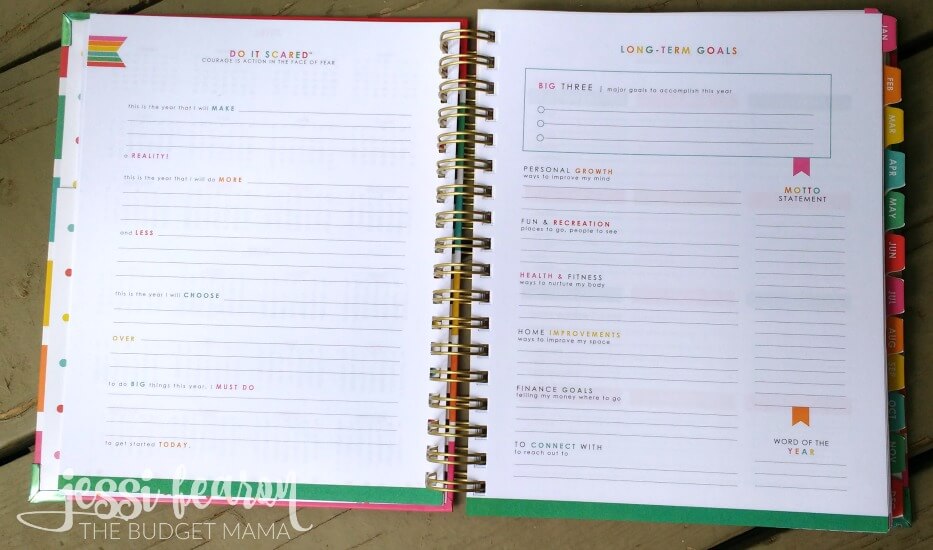 DO IT SCARED™
COURAGE IS ACTION IN THE FACE OF FEAR
this is the year that I will MAKE
a REALITY!
this is the year that I will do MORE
and LESS
this is the year I will CHOOSE
OVER
to do BIG things this year, I MUST DO
to get started TODAY.
LONG-TERM GOALS
BIG THREE | major goals to accomplish this year
PERSONAL GROWTH
ways to improve my mind
FUN & RECREATION
places to go, people to see
HEALTH & FITNESS
ways to nurture my body
HOME IMPROVEMENTS
ways to improve my space
FINANCE GOALS
telling my money where to go
TO CONNECT WITH
to reach out to
MOTTO
STATEMENT
WORD OF THE
YEAR
JAN
FEB
MAR
APR
MAY
JUN
JUL
AUG
SEP
OCT
NOV
jessi fearon
THE BUDGET MAMA